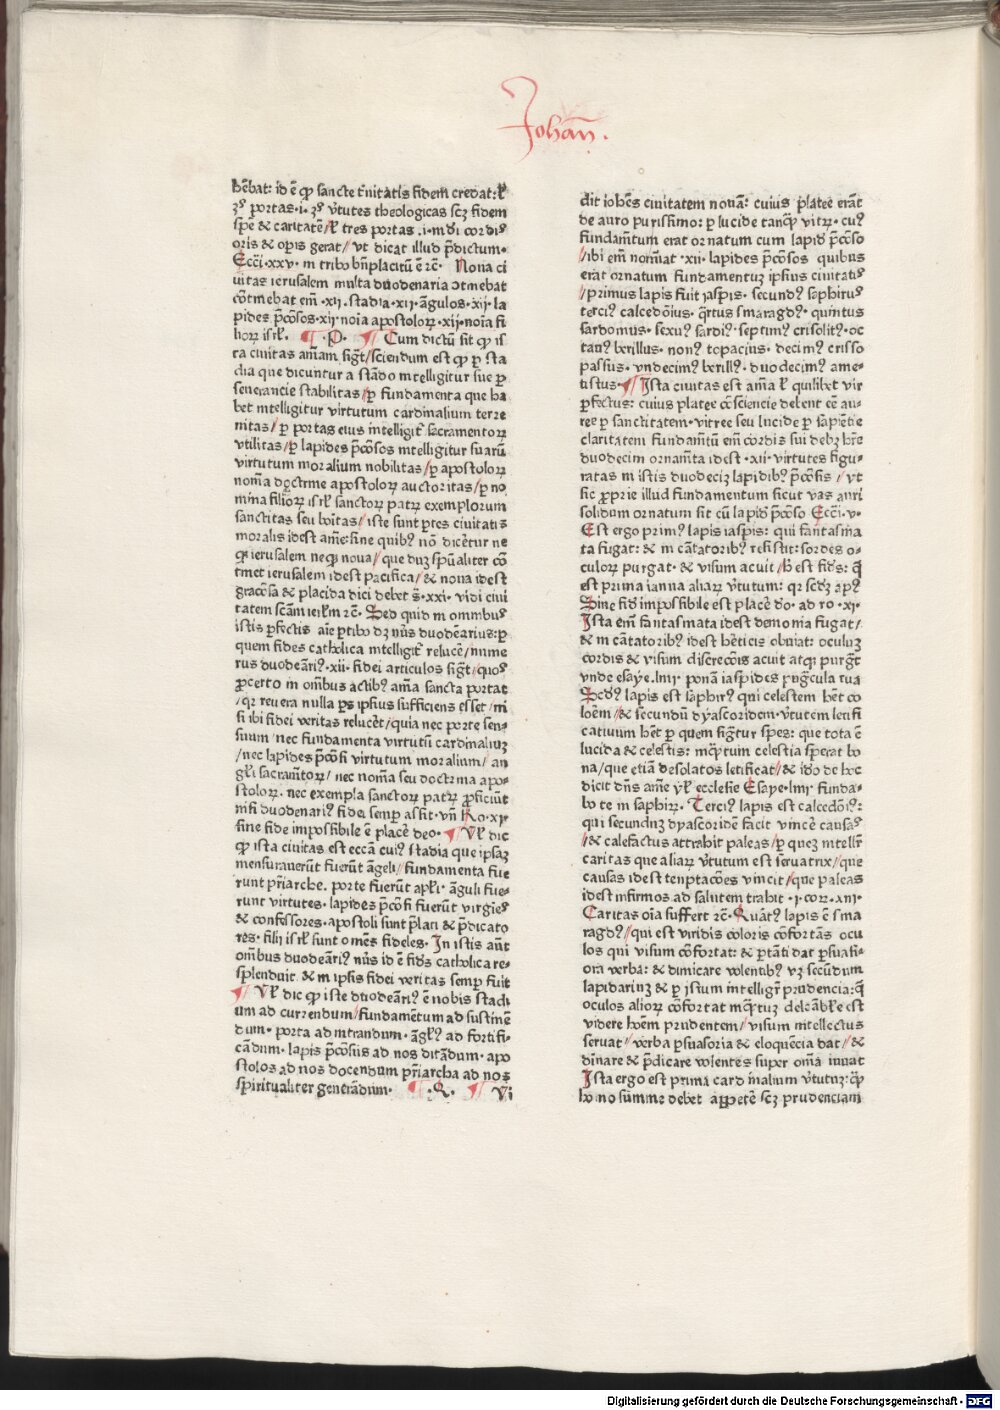 Johan̄.
hēbat: id ē ꝙ sancte t̄nitatis fidem credat: ł
ꝫꝰ portas .i. ꝫꝰ v̄tutes theologicas scꝫ fidem
spē & caritatē/ł tres portas .i. mūdi cordiꝰ
oris & opis gerat/vt dicat illud p̄dictum.
Ecc̄i .xxv. in tribꝰ bn̄placitū ē rc̄. Noua ci
uitas ierusalem multa duodenaria ↄtinebat
cōtinebat em̄ .xij. stadia .xij. āgulos .xij. la
pides p̄cōsos .xij. noīa apostoloꝝ .xij. noīa fi
lioꝝ isrł. ¶ .P. ¶ Cum dictū sit ꝙ is
ta ciuitas am̄am siḡt/sciendum est ꝙ ꝑ sta
dia que dicuntur a stādo intelligitur siue ꝑ
seuerancie stabilitas/ꝑ fundamenta que ha
bet intelligitur virtutum cardinalium terre
nitas/ꝑ portas eius intelligit̄ sacramentoꝝ
vtilitas/ꝑ lapides p̄cōsos intelligitur suarū
virtutum moralium nobilitas/ꝑ apostoloꝝ
nom̄a doctrine apostoloꝝ auctoritas/ꝑ no
mina filioꝝ isrł sanctoꝝ patꝝ exemplorum
sanctitas seu boītas/iste sunt ꝑtes ciuitatis
moralis idest ame: sine quibꝰ nō dicētur ne
qꝫ ierusalem neqꝫ noua/que duꝫ spūaliter cō
tinet ierusalem idest pacifica/& noua idest
gracōsa & placida dici debet s̄ .xxi. vidi ciui
tatem sēam ierłm rc̄. Sed quid in omnibuꝰ
istis ꝑfectis aīe ptibꝰ dꝫ nūs duodēarius: ꝑ
quem fides catholica intelligit̄ relucē/nume
rus duodeāriꝰ .xii. fidei articulos siḡt/quoꝰ
ꝓcerto in om̄ibus actibꝰ am̄a sancta portat
/qꝛ reuera nulla ꝑs ipsius sufficiens esset/ni
si ibi fidei veritas relucēt/quia nec porte sen-
suum/nec fundamenta virtutū cardinaliuꝫ
/nec lapides p̄cōsi virtutum moralium/an
głi sacram̄toꝝ/nec nom̄a seu doctrina apo-
stoloꝝ. nec exempla sanctoꝝ patꝝ ꝓficiūt
nisi duodenariꝰ fidei semꝑ assit. vn̄ Ro .xi.
sine fide impossibile ē placē deo. ¶ Vł dic
ꝙ ista ciuitas est ecc̄a cuiꝰ stadia que ipsaꝫ
mensurauerūt fuerūt āgeli/fundamenta fue
runt pr̄iarche. porte fuerūt apłi. āguli fue-
runt virtutes. lapides p̄cōsi fuerūt virgieꝰ
& confessores. apostoli sunt p̄lati & p̄dicato
res. filij isrł sunt om̄es fideles. In istis aūt
om̄ibus duodeāriꝰ nūs id ē fidꝰs catholica re-
splenduit & in ipsis fidei veritas semꝑ fuit
¶ Vł dic ꝙ iste duodeāriꝰ ē nobis stadi
um ad currendum/fundamētum ad sustinē
dum. porta ad intrandum. āgłꝰ ad fortifi-
cādum. lapis p̄cōsus ad nos ditādum. apo
stolos ad nos docendum pr̄iarcha ad nos
spiritualiter generādum. ¶ .Q. ¶ Vi
dit iohēs ciuitatem nouā: cuius platee erāt
de auro purissimo: ꝑlucide tanqꝫ vitꝝ. cuiꝰ
fundam̄tum erat ornatum cum lapidꝰ p̄cōso
/ibi em̄ nom̄iat .xii. lapides p̄cōsos quibus
erat ornatum fundamentuꝫ ipsius ciuitatiꝰ
/primus lapis fuit iaspis. secundꝰ saphiruꝰ
terciꝰ calcedoīus. q̄rtus smaragdꝰ. quintus
sardonius. sextꝰ sardiꝰ. septimꝰ crisolitꝰ. oc
tauꝰ berillus. nonꝰ topacius. decimꝰ crisso
passus. vndecimꝰ berillꝰ. duodecimꝰ ame-
tistus. ¶ Ista ciuitas est am̄a ł quilibet vir
ꝑfectus: cuius platee cōsciencie debent eē au-
ree ꝑ sanctitatem. vitree seu lucide ꝑ sapiētie
claritatem fundam̄tū em̄ cordis sui debꝫ hr̄e
duodecim ornam̄ta idest .xii. virtutes figu-
ratas in istis duodeciꝫ lapidibꝰ p̄cōsis/vt
sic ꝓprie illud fundamentum sicut vas auri
solidum ornatum sit cū lapidꝰ p̄cōso Ecc̄i. v.
Est ergo primꝰ lapis iaspis: qui fantasma
ta fugat: & in cātatoribꝰ resistit: sordes o-
culoꝝ purgat. & visum acuit/h̄ est fidꝰs: q̄
est prima ianua aliaꝝ v̄tutum: qꝛ scd̄ꝫ apꝰ
Sine fidꝰ impossibile est placē dō. ad ro .xi.
Ista em̄ fantasmata idest demonia fugat/
& in cātatoribꝰ idest hēticis obuiat: oculuꝫ
cordis & visum discrecōis acuit atqꝫ purg̈t
vnde esaye. liiij. ponā iaspides ꝓpugc̄ula tua
Scd̄ꝰ lapis est saphirꝰ qui celestem hēt co
loēm/& secundū dyascoridem. v̄tutem letifi
catiuum hēt ꝑ quem siḡtur spes: que tota ē
lucida & celestis: inqꝫtum celestia sperat bo
na/que etiā desolatos letificat/& idꝰo de hoc
dicit dn̄s ame ył ecclesie Esaye. liiij funda-
bo te in saphiꝝ. Terciꝰ lapis est calcedoīꝰ:
qui secunduꝫ dyascoridē facit vincē causaꝰ
/& calefactus attrahit paleas/ꝑ queꝫ intellr̄
caritas que aliaꝝ v̄tutum est seruatrix/que
causas idest tenptacōes vincit/que paleas
idest infirmos ad salutem trahit .i. cor. xiij.
Caritas oīa suffert rc̄. Quārtꝰ lapis ē sma
ragdꝰ/qui est viridis coloris cōfortās ocu
los qui visum cōfortat: & ꝑtāti dat ꝑsuasi-
oīa verba: & dimicare volentibꝰ vꝫ secūdum
lapidariuꝫ & ꝑ istum intelligr̄ prudencia: q̄
oculos alioꝝ cōfortat inqꝫtuꝫ delcābłe est
videre hoēm prudentem/visum intellectus
seruat/verba ꝑsuasoria & eloquēcia dat/&
dīnare & p̄dicare volentes super om̄a iuuat
Ista ergo est prima cardinalium v̄tutuꝫ: qꝫ
homo summe debet appetē scꝫ prudenciam
Digitalisierung gefördert durch die Deutsche Forschungsgemeinschaft - DFG